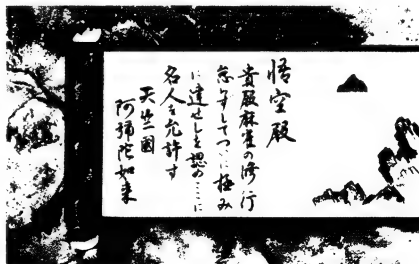 悟空殿
貴殿麻雀の修行
怠らずしてついに極み
に達せしと認め‥‥に
名人を允許す
天竺國
阿弥陀如来